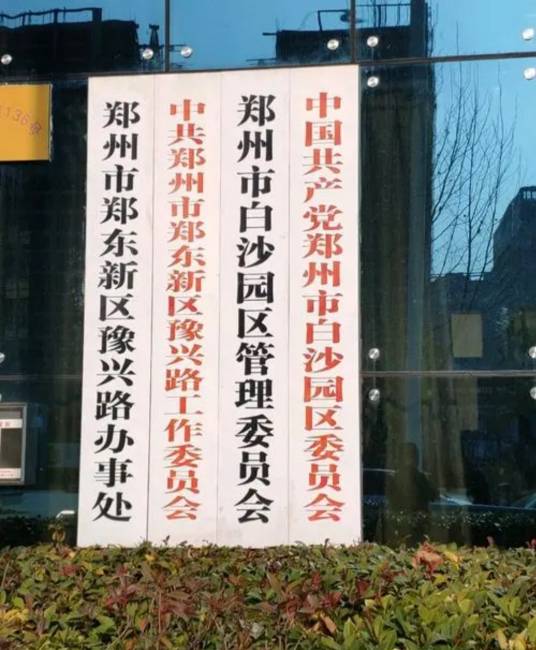 中国共产党郑州市白沙园区委员会
郑州市白沙园区管理委员会
中共郑州市郑东新区豫兴路工作委员会
郑州市郑东新区豫兴路办事处
136号